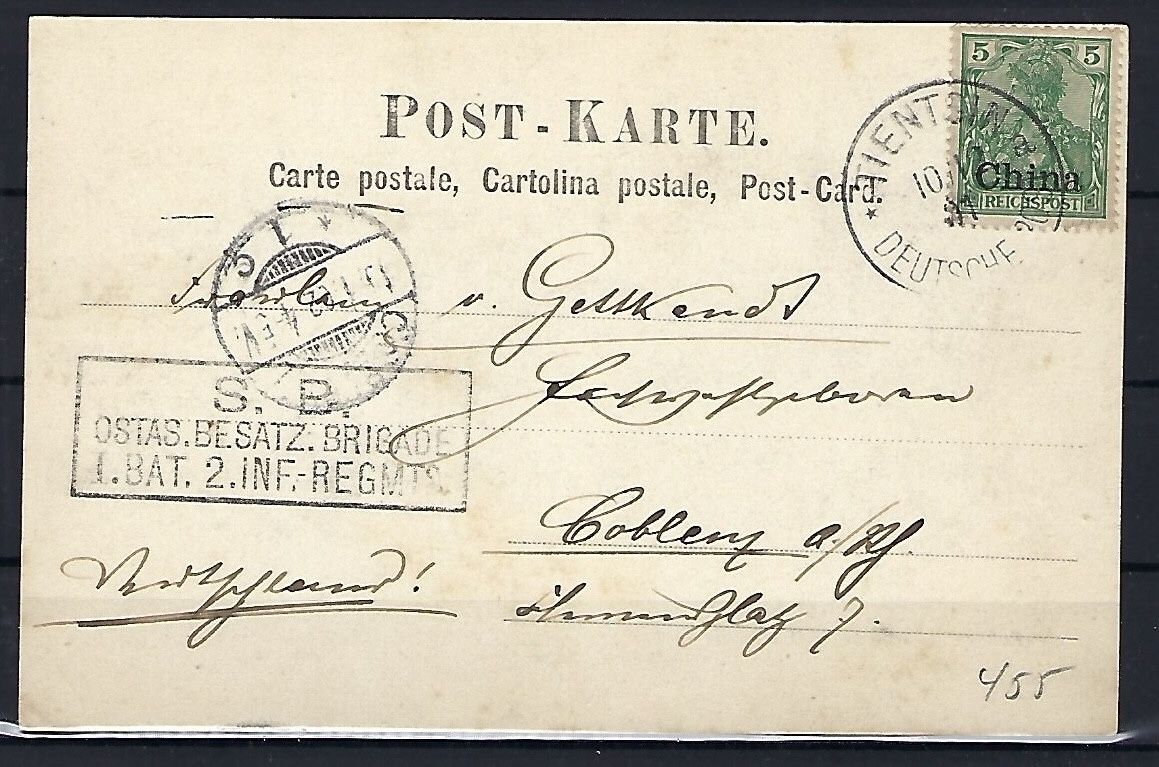 POST-KARTE.
Carte postale, Cartolina postale, Post-Card.
5 5
China
REICHSPOST
TIENTSIN
10
a
DEUTSCHE
Fräulein v. Gettkandt
Hochwohlgeboren
S. B.
OSTAS. BESATZ. BRIGADE
1. BAT. 2. INF.-REGMTS.
Coblenz a/Rh.
Deutschland!
7.
455